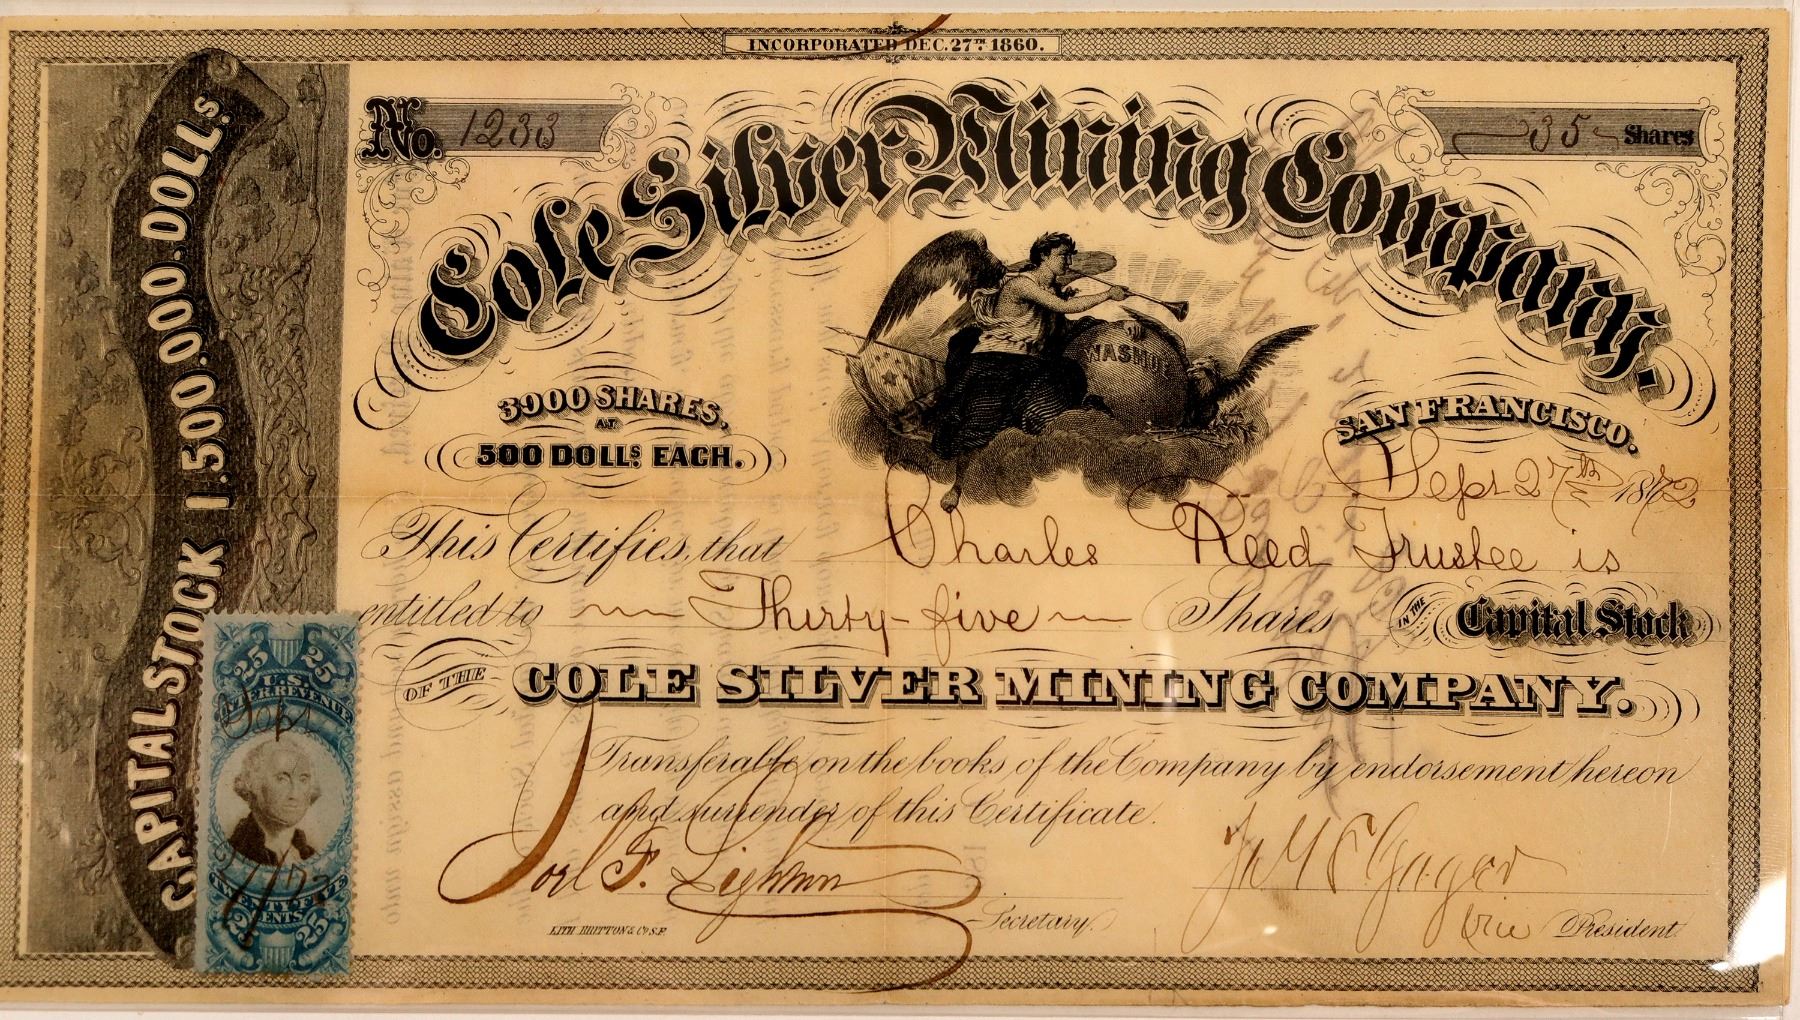 INCORPORATED DEC. 27TH 1860.
No. 1233
35 Shares
Cole Silver Mining Company.
CAPITAL STOCK 1.500.000.DOLLS.
WASHOE
3900 SHARES,
AT
500 DOLLS. EACH.
SAN FRANCISCO.
Sept 27th 1872
This Certifies, that Charles Reed Trustee is
entitled to Thirty-five Shares IN THE Capital Stock
OF THE COLE SILVER MINING COMPANY.
Transferable on the books of the Company by endorsement hereon
and surrender of this Certificate.
Joel F. Lightner
Secretary.
Vice President
LITH. BRITTON & CO S.F.
25 25
U.S.
INTER. REVENUE
Sept
TWENTY FIVE
CENTS
25 25